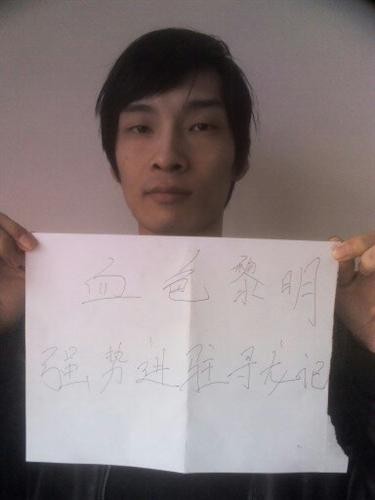 血色黎明
强势进驻寻龙记